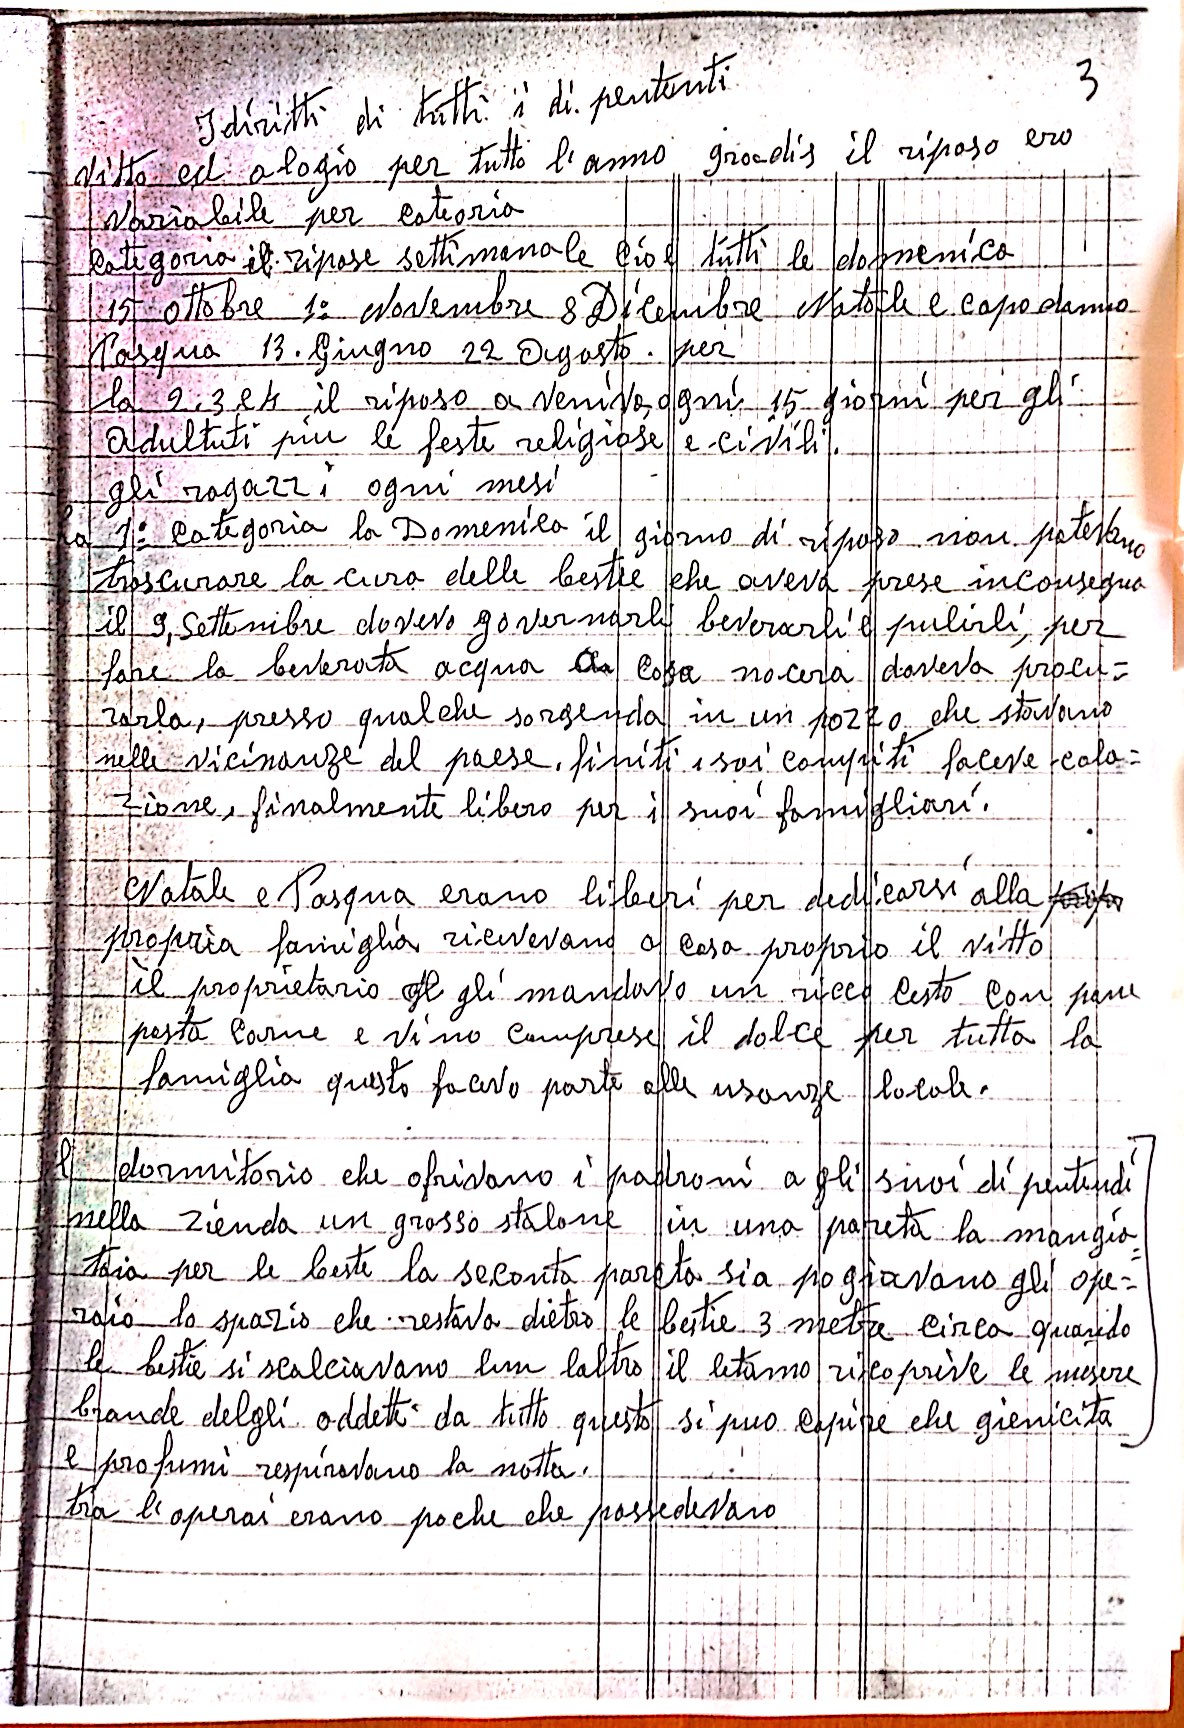 3
I diritti di tutti i di pententi
Vitto ed alogio per tutto l'anno gradis il riposo era
variabile per categoria
categoria il ripose settimanale cioè tutti le domenica
15 ottobre 1º Novembre 8 Dicembre Natale e capodanno
Pasqua 13. Giugno 22 Agosto. per
la 2. 3 e 4 il riposo a veniva, ogni 15 giorni per gli
adultuti piu le feste religiose e civili.
gli ragazzi ogni mesi
la 1º categoria la Domenica il giorno di riposo non potevano
trascurare la cura delle bestie che aveva prese inconsegna
il 9, Settembre doveva governarli beverarli e pulirli, per
fare la beverata acqua a casa nocera doveva procu=
rarla, presso qualche sorgenda in un pozzo che stavano
nelle vicinanze del paese. finiti i soi compiti faceve cola=
zione, finalmente libero per i suoi famigliari.
Natale e Pasqua erano liberi per dedicarsi alla
propria famiglia ricevevano a casa proprio il vitto
il proprietario gli mandava un ricco cesto con pane
pasta carne e vino comprese il dolce per tutta la
famiglia questo faceva parte alle usanze locale.
l dormitorio che ofrivano i padroni a gli suoi di pentendi
nella zienda un grosso stalone in una pareta la mangia=
toia per le beste la seconta pareta sia pogiavano gli ope=
raio lo spazio che restava dietro le bestie 3 metre circa quando
le bestie si scalciavano lun laltro il letamo ricoprive le misere
brande delgli addetti da tutto questo si puo capire che gienicita
e profumi respiravano la notta.
tra l'operai erano poche che possedevano